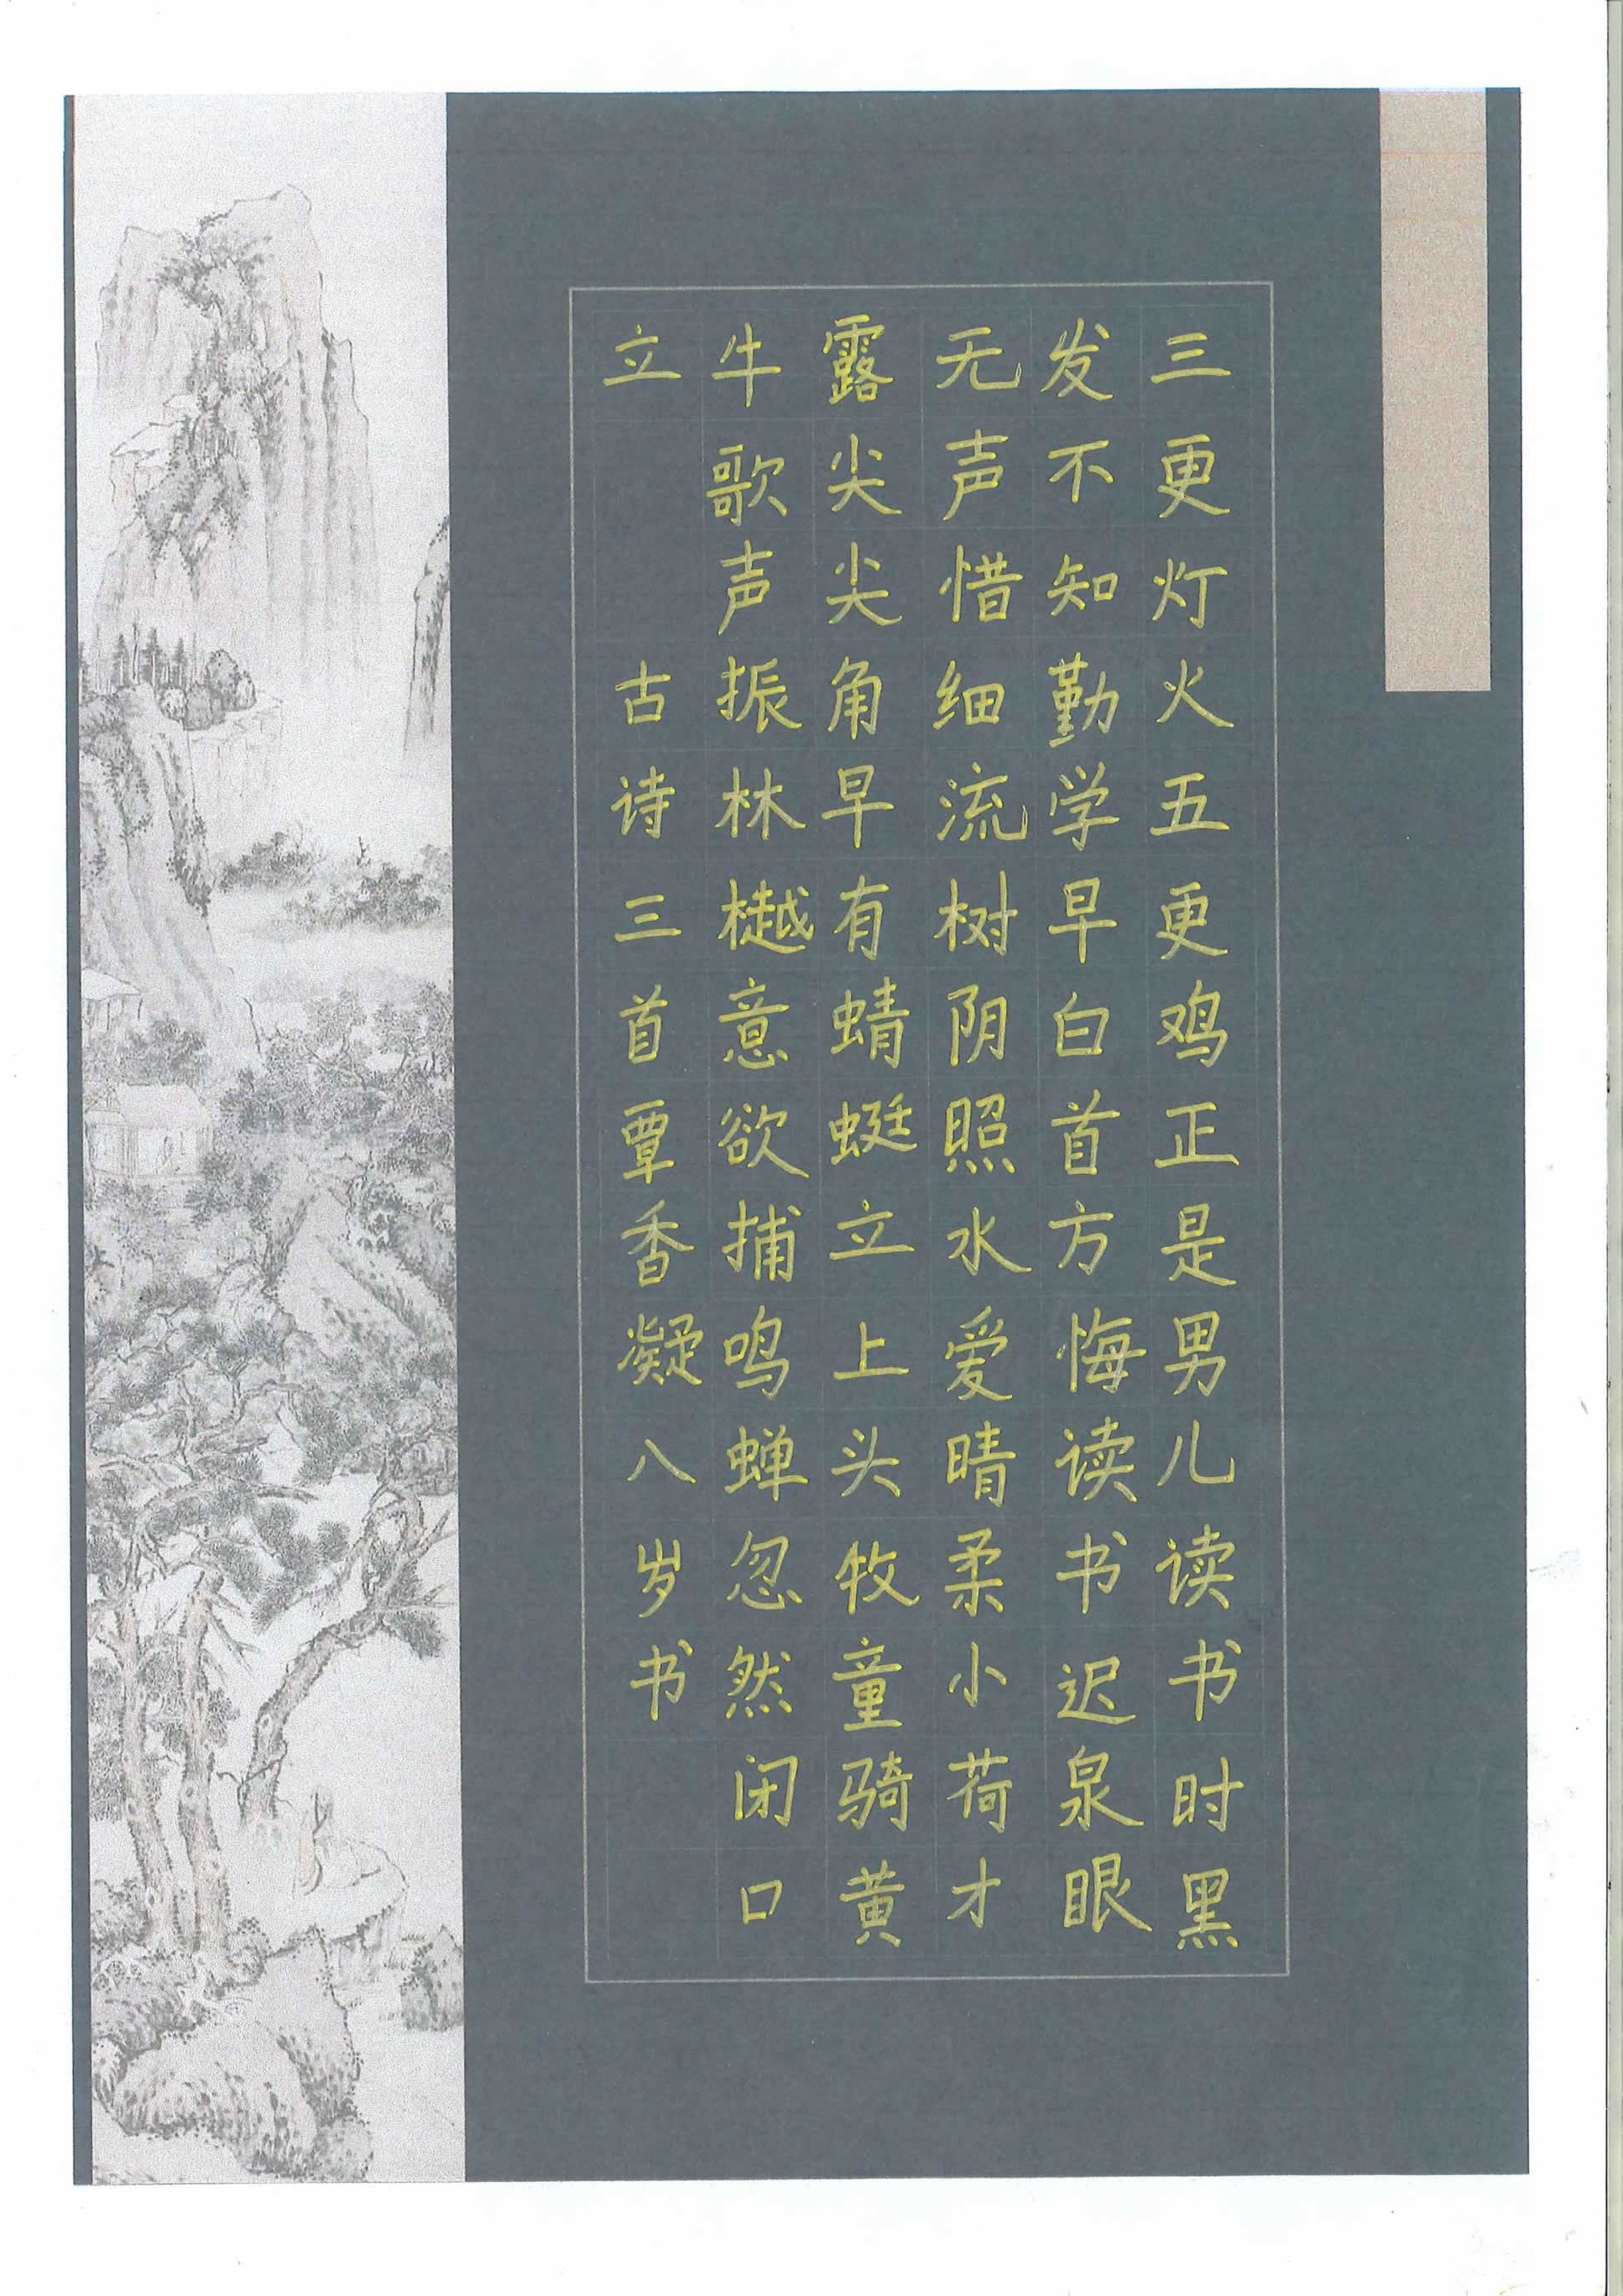 三更灯火五更鸡正是男儿读书时黑
发不知勤学早白首方悔读书迟泉眼
无声惜细流树阴照水爱晴柔小荷才
露尖尖角早有蜻蜓立上头牧童骑黄
牛歌声振林樾意欲捕鸣蝉忽然闭口
立 古诗三首覃香凝八岁书